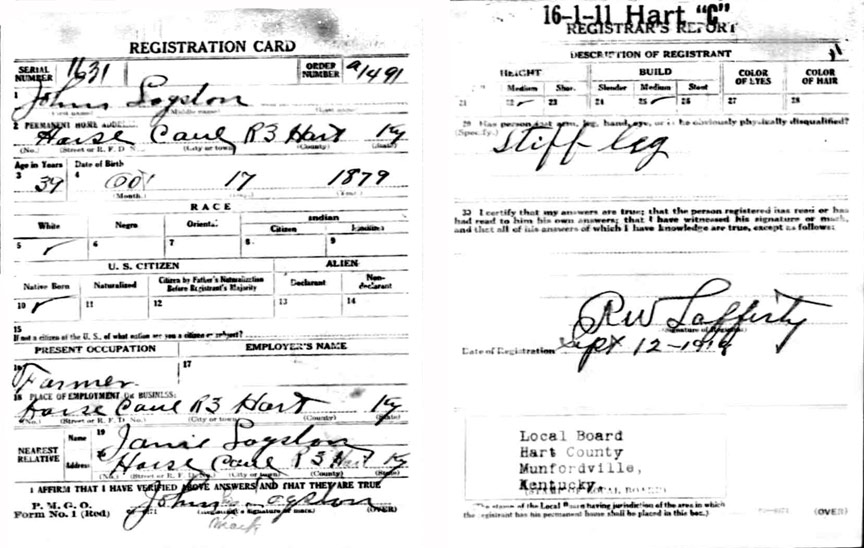 REGISTRATION CARD
SERIAL NUMBER 1631
ORDER NUMBER a1491
1 John Logston
2 PERMANENT HOME ADDRESS:
Horse Cave R3 Hart Ky
(No.) (Street or R. F. D. No.) (City or town) (County) (State)
Age in Years Date of Birth
3 39 4 Oct 17 1879
(Month.) (Day.) (Year.)
RACE
White Negro Oriental Indian
Citizen
5 ✓ 6 7 8 9
U. S. CITIZEN ALIEN
Native Born Naturalized Citizen by Father's Naturalization Before Registrant's Majority Declarant Non-declarant
10 ✓ 11 12 13 14
15
If not a citizen of the U. S., of what nation are you a citizen or subject?
PRESENT OCCUPATION EMPLOYER'S NAME
16 Farmer 17
18 PLACE OF EMPLOYMENT OR BUSINESS:
Horse Cave R3 Hart Ky
(No.) (Street or R. F. D. No.) (City or town) (County) (State)
NEAREST RELATIVE Name 19 Janie Logston
Address Horse Cave R3 Hart Ky
(No.) (Street or R. F. D. No.) (City or town) (County) (State)
I AFFIRM THAT I HAVE VERIFIED ABOVE ANSWERS AND THAT THEY ARE TRUE
P. M. G. O.
Form No. 1 (Red) John Logston (OVER)
(Registrant's signature or mark)
mark
16-1-11 Hart "C"
REGISTRAR'S REPORT
DESCRIPTION OF REGISTRANT
HEIGHT BUILD COLOR OF EYES COLOR OF HAIR
Medium Short Slender Medium Stout
21 22 ✓ 23 24 25 ✓ 26 27 28
29 Has person lost arm, leg, hand, eye, or is he obviously physically disqualified?
(Specify.)
Stiff leg
30 I certify that my answers are true; that the person registered has read or has
had read to him his own answers; that I have witnessed his signature or mark,
and that all of his answers of which I have knowledge are true, except as follows:
R W Lafferty
(Signature of Registrar)
Date of Registration Sept 12-1918
Local Board
Hart County
Munfordville,
Kentucky.
(STAMP OF LOCAL BOARD)
(The stamp of the Local Board having jurisdiction of the area in which
the registrant has his permanent home shall be placed in this box.)
(OVER)